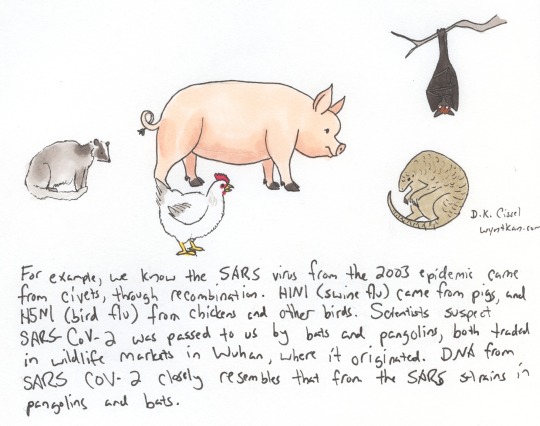 D.K. Cissel
wyntkan.com
For example, we know the SARS virus from the 2003 epidemic came
from civets, through recombination. H1N1 (swine flu) came from pigs, and
H5N1 (bird flu) from chickens and other birds. Scientists suspect
SARS-CoV-2 was passed to us by bats and pangolins, both traded
in wildlife markets in Wuhan, where it originated. DNA from
SARS COV-2 closely resembles that from the SARS strains in
pangolins and bats.